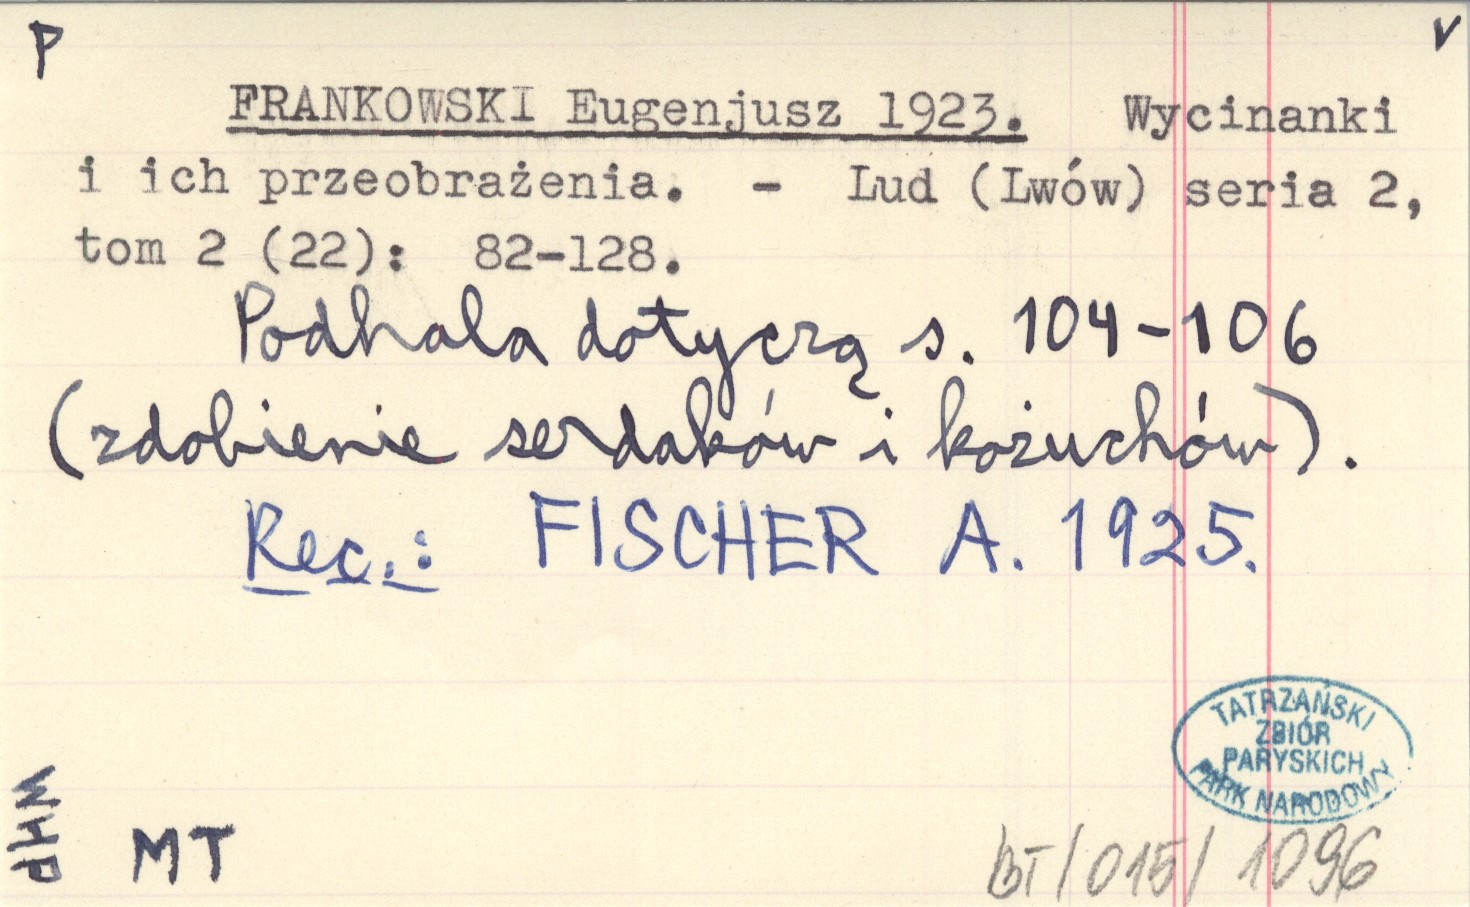 P
V
FRANKOWSKI Eugenjusz 1923. Wycinanki
i ich przeobrażenia. - Lud (Lwów) seria 2,
tom 2 (22): 82-128.
Podhala dotyczą s. 104-106
(zdobienie serdaków i kożuchów).
Rec.: FISCHER A. 1925.
TATRZAŃSKI
ZBIÓR
PARYSKICH
PARK NARODOWY
WHP
MT
BT/015/1096